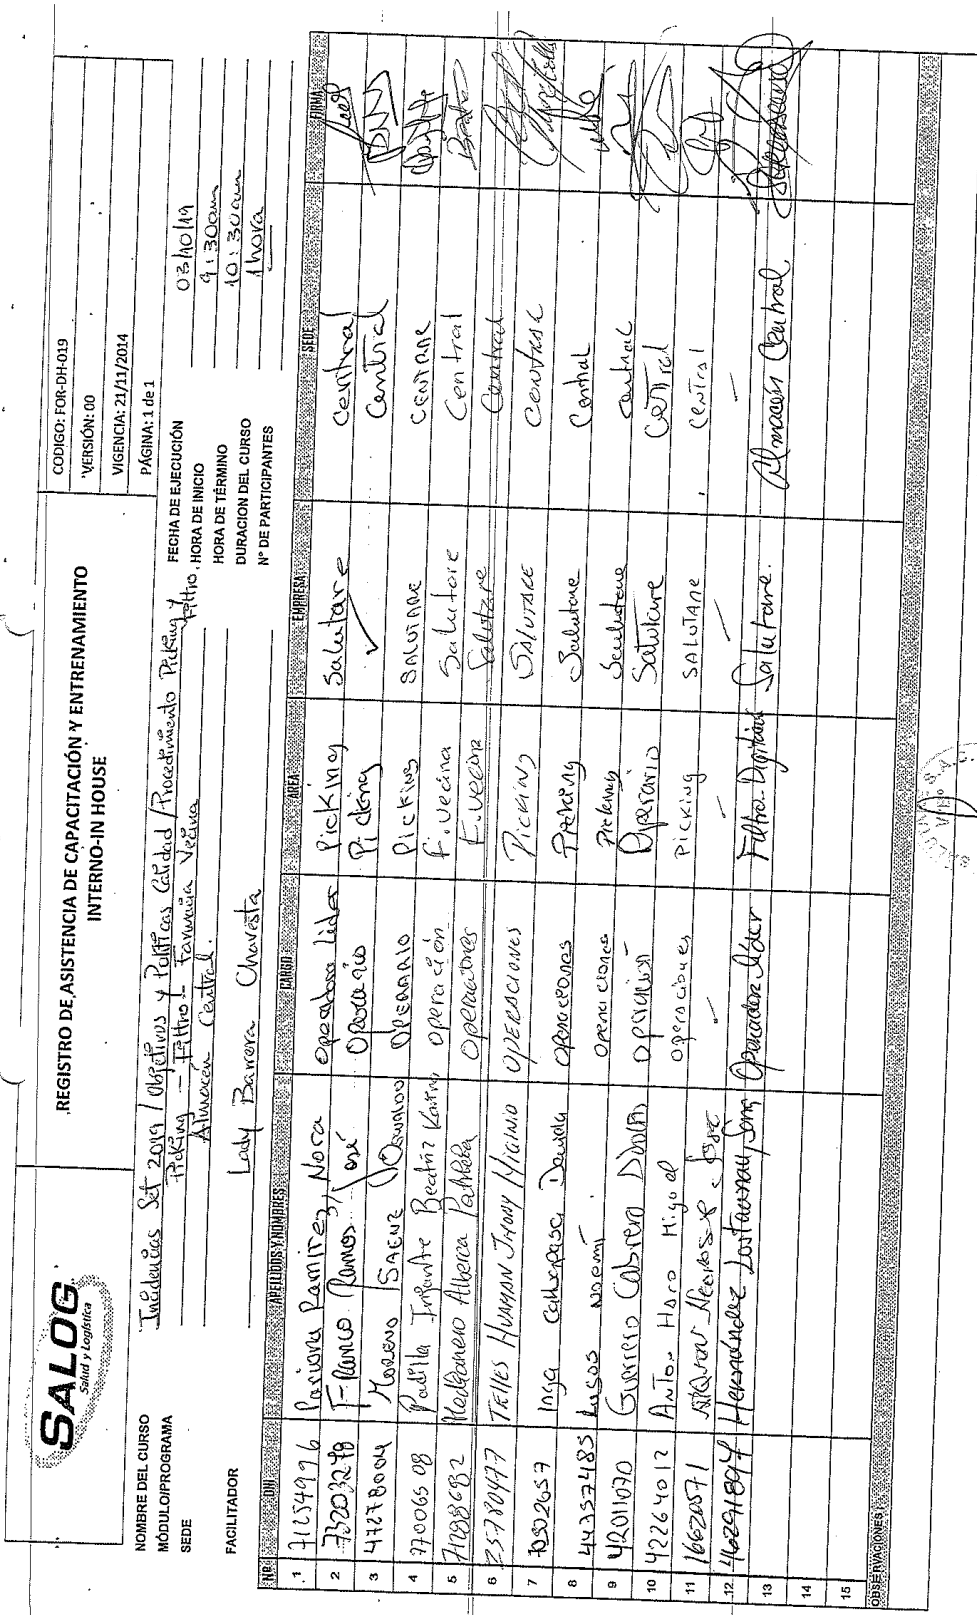 SALOG
Salud y Logística
REGISTRO DE ASISTENCIA DE CAPACITACIÓN Y ENTRENAMIENTO
INTERNO-IN HOUSE
CODIGO: FOR-DH-019
VERSIÓN: 00
VIGENCIA: 21/11/2014
PÁGINA: 1 de 1
NOMBRE DEL CURSO Incidencias Set 2019 / Objetivos y Políticas Calidad / Procedimiento Picking y Filtro.
MÓDULO/PROGRAMA Picking - Filtro - Farmacia Vecina
SEDE Almacén Central.
FACILITADOR Lady Barrera Chavesta
FECHA DE EJECUCIÓN 03/10/19
HORA DE INICIO 9:30am
HORA DE TÉRMINO 10:30am
DURACION DEL CURSO 1 hora
N° DE PARTICIPANTES
Nº DNI APELLIDOS Y NOMBRES CARGO AREA EMPRESA SEDE FIRMA
1 71254996 Pariona Ramirez, Nora operadora lider Picking Salutare Central
2 73203278 Franco Ramos, José Operario Picking ✓ Central
3 47278004 Moreno SAENZ Oswaldo OPERARIO Picking SALUTARE CENTRAL
4 77006508 Padilla Infante Beatriz Karina operación F. vecina Salutare Central
5 71298682 Alberca operaciones F. vecina Salutare Central
6 25780477 TELLES HUAMAN JHONY HIGINIO OPERACIONES PICKING SALUTARE CENTRAL
7 Inga Daniela operaciones Picking Salutare Central
8 44357485 Lugos Noemí operaciones Picking Salutare central
9 42011070 Guerrero Cabrera operación Operario Salutare Central
10 42264012 Anton Haro Miguel operaciones Picking SALUTARE central
11 16620571 José - - - -
12 46291894 Hernández Operador líder Filtro- Salutare. Almacén Central
13
14
15
OBSERVACIONES